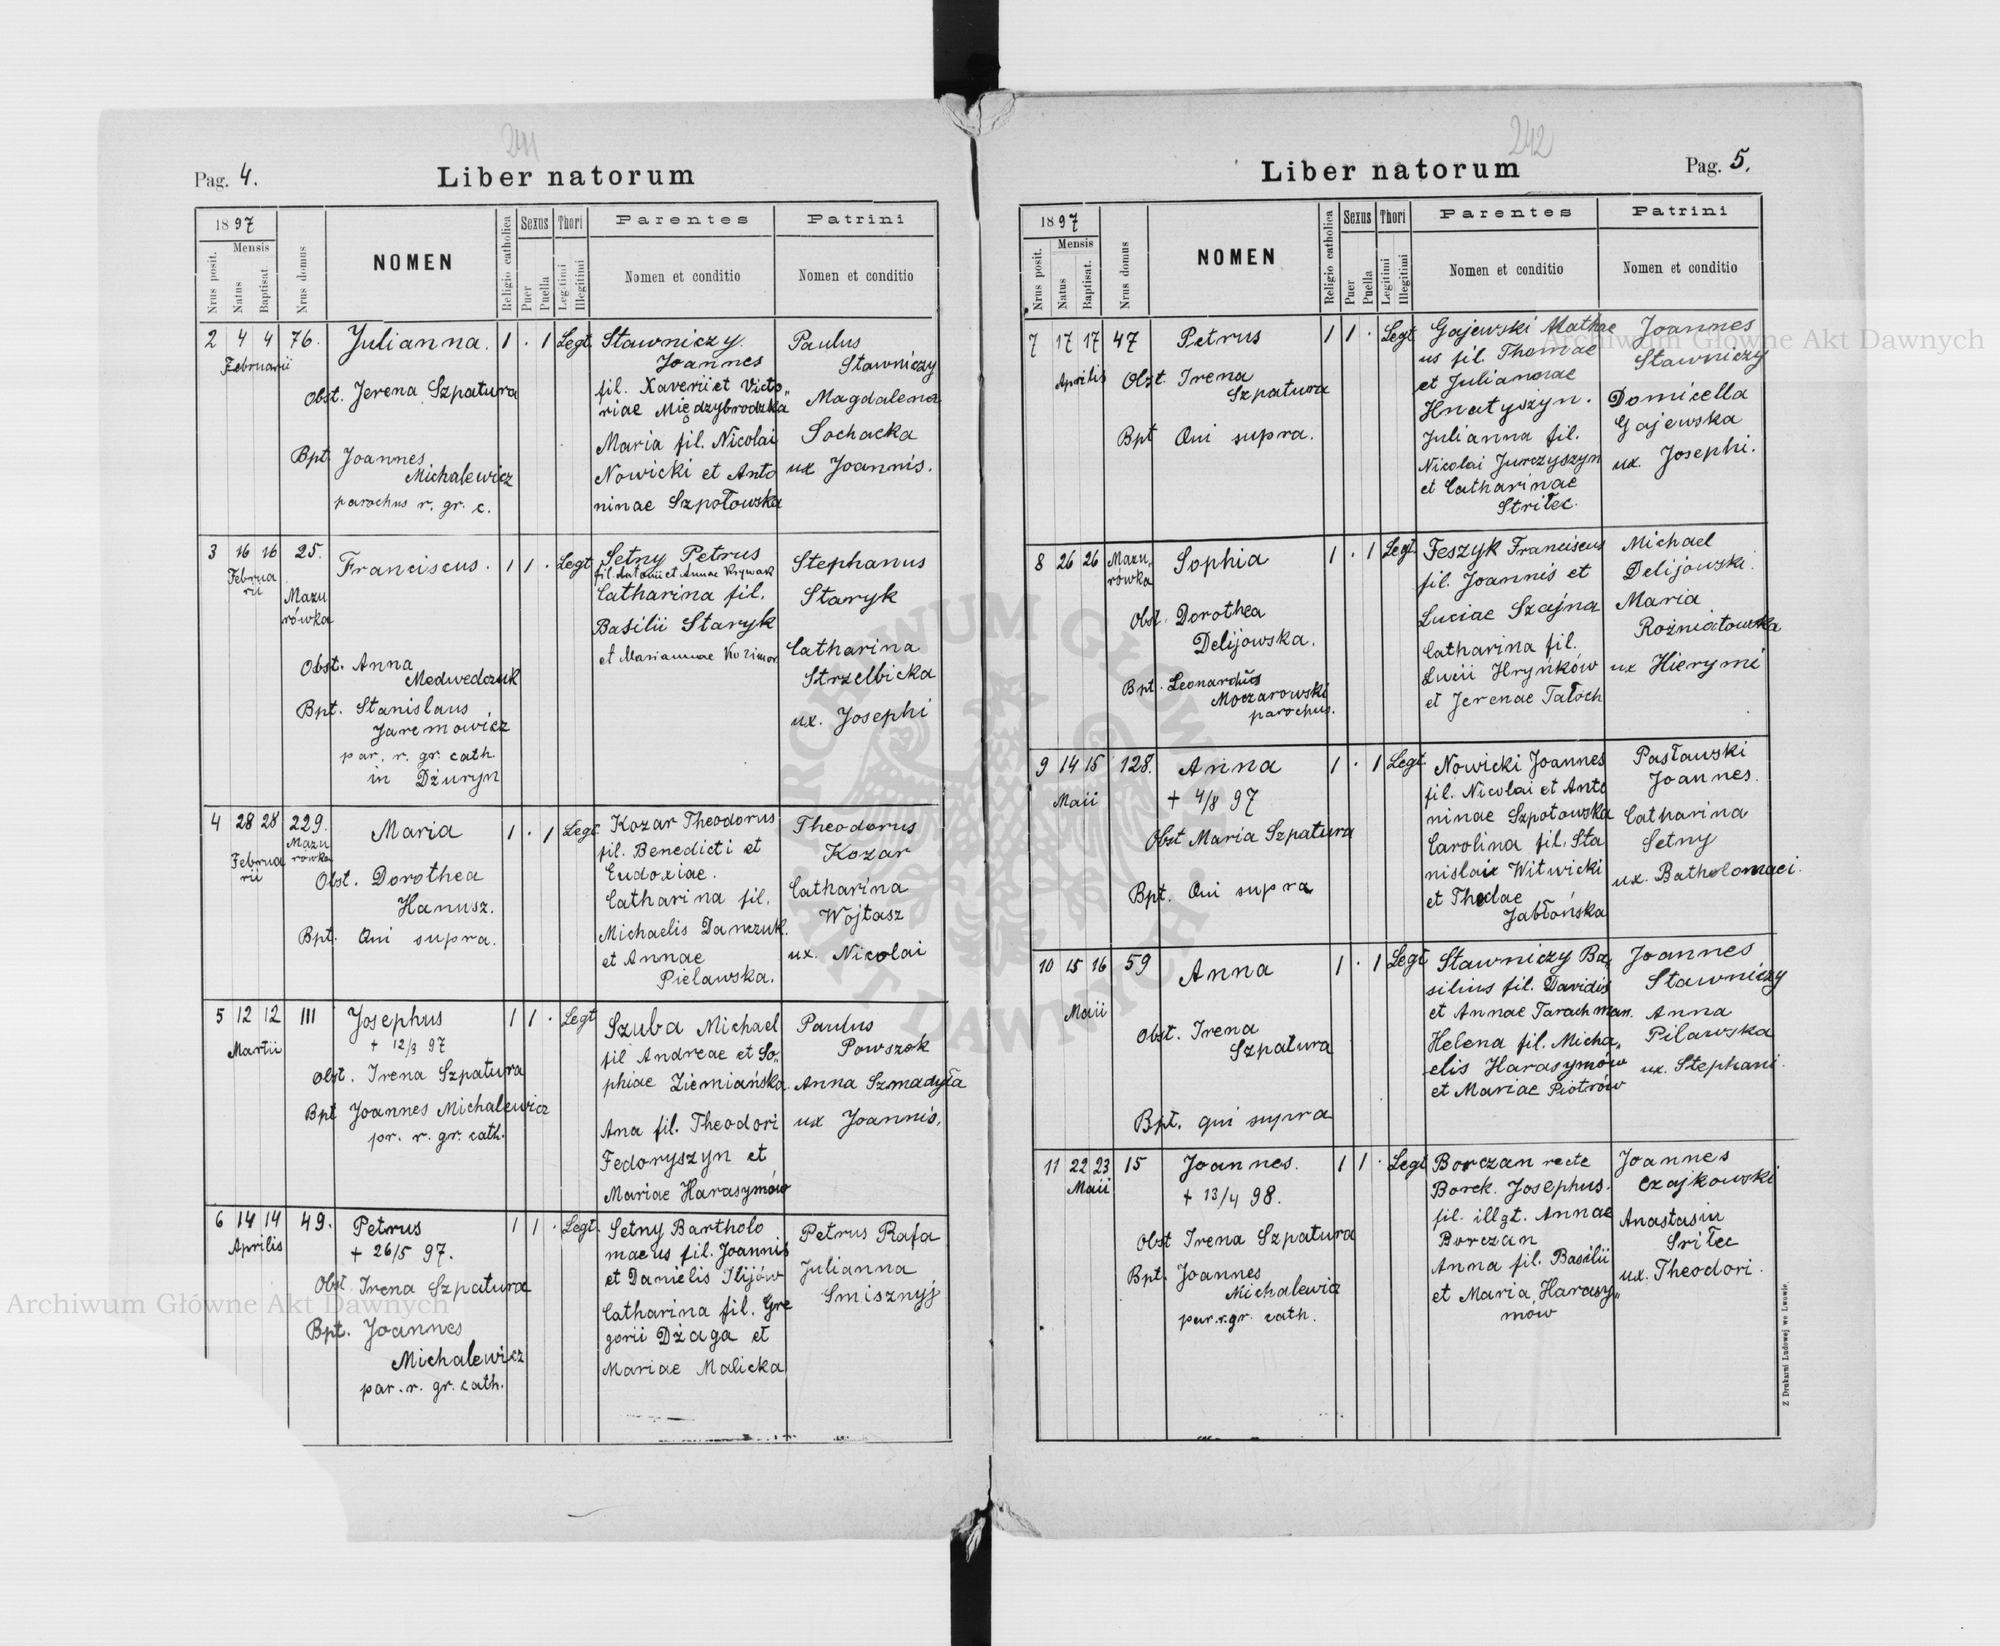 241
Pag. 4.
Liber natorum
1897
Nrus posit.
Mensis
Natus
Baptisat.
Nrus domus
NOMEN
Religio catholica
Sexus
Puer
Puella
Thori
Legitimi
Illegitimi
Parentes
Nomen et conditio
Patrini
Nomen et conditio
2 4 4 76. Julianna. 1 . 1 Legt.
Februarii
Obst. Jerena Szpatura
Bpt. Joannes
Michalewicz
parochus r. gr. c.
Stawniczy
Joannes
fil. Xaverii et Victo„
riae Międzybrodzka
Maria fil. Nicolai
Nowicki et Anto
ninae Szpotowska
Paulus
Stawniczy
Magdalena
Sochacka
ux Joannis.
3 16 16 25. Franciscus. 1 1 . Legt.
Februa
rii
Mazu
rówka
Obst. Anna
Medwedczuk
Bpt. Stanislaus
Jaremowicz
par. r. gr. cath.
in Dżuryn
Setny Petrus
fil. Antonii et Annae Krywak
Catharina fil.
Basilii Staryk
et Mariannae
Stephanus
Staryk
Catharina
Strzelbicka
ux. Josephi
4 28 28 229. Maria 1 . 1 Legt.
Mazu
rówka
Februa
rii
Obst. Dorothea
Hanusz.
Bpt. Qui supra.
Kozar Theodorus
fil. Benedicti et
Eudoxiae.
Catharina fil.
Michaelis Danczuk.
et Annae
Pielawska.
Theodorus
Kozar
Catharina
Wojtasz
ux. Nicolai
5 12 12 111 Josephus 1 1 . Legt
Martii
+ 12/3 97
Obst. Irena Szpatura
Bpt Joannes Michalewicz
pr. r. gr. cath.
Szuba Michael
fil Andreae et So„
phiae Ziemiańska.
Ana fil. Theodori
Fedoryszyn et
Mariae Harasymów
Paulus
Powszok
Anna Szmadyła
ux Joannis.
6 14 14 49. Petrus 1 1 . Legt.
Aprilis
+ 26/5 97.
Obst. Irena Szpatura
Bpt. Joannes
Michalewicz
par. r. gr. cath.
Setny Bartholo
maeus fil. Joannis
et Danielis Ilijów
Catharina fil. Gre
gorii Dżaga et
Mariae Malicka
Petrus Rafa
Julianna
Smisznyj
242
Liber natorum
Pag. 5.
1897
Nrus posit.
Mensis
Natus
Baptisat.
Nrus domus
NOMEN
Religio catholica
Sexus
Puer
Puella
Thori
Legitimi
Illegitimi
Parentes
Nomen et conditio
Patrini
Nomen et conditio
7 17 17 47 Petrus 1 1 . Legt
Aprilis
Obst. Irena
Szpatura
Bpt Qui supra.
Gajewski Mathae
us fil. Thomae
et Juliannae
Hnatyszyn.
Julianna fil.
Nicolai Jurczyszyn
et Catharinae
Striłec.
Joannes
Stawniczy
Domicella
Gajewska
ux. Josephi.
8 26 26 Mazu„ Sophia 1 . 1 Legt.
rówka
Obst. Dorothea
Delijowska.
Bpt. Leonardus
Moczarowski
parochus.
Feszyk Franciscus
fil. Joannis et
Luciae Szajna
Catharina fil.
Lucii Hryńków
et Jerenae Tałoch
Michael
Delijowski.
Maria
Rożniatowska
ux Hierymi
9 14 15 128. Anna 1 . 1 Legt.
Maii
+ 4/8 97
Obst Maria Szpatura
Bpt. Qui supra
Nowicki Joannes
fil. Nicolai et Anto
ninae Szpotowska
Carolina fil. Sta
nislai Witwicki
et Theclae
Jabłońska
Pasławski
Joannes.
Catharina
Setny
ux. Batholomaei.
10 15 16 59 Anna 1 . 1 Legt
Maii
Obst. Irena
Szpatura
Bpt. qui supra
Stawniczy Ba„
silius fil. Davidis
et Annae Tarachman.
Helena fil. Micha„
elis Harasymów
et Mariae Piotrów
Joannes
Stawniczy
Anna
Pilawska
ux. Stephani.
11 22 23 15 Joannes. 1 1 . Legt
Maii
+ 13/4 98.
Obst Irena Szpatura
Bpt. Joannes
Michalewicz
par. r. gr. cath.
Borczan recte
Borek. Josephus.
fil. illgt. Annae
Borczan
Anna fil. Basilii
et Maria Harasy„
mów
Joannes
Czajkowski
Anastasia
Sriłec
ux. Theodori.
Z Drukarni Ludowej we Lwowie.
Archiwum Główne Akt Dawnych
Archiwum Główne Akt Dawnych
ARCHIWUM GŁÓWNE AKT DAWNYCH